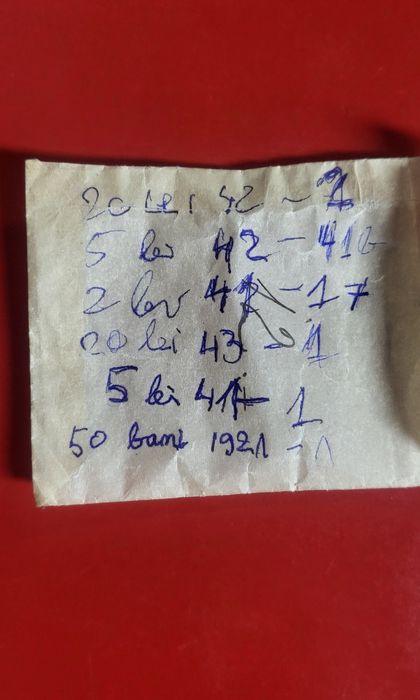 20 lei 42 - 1
5 lei 42 - 412
2 lei 41 - 17
20 lei 43 - 1
5 lei 41 - 1
50 bani 1921 - 1